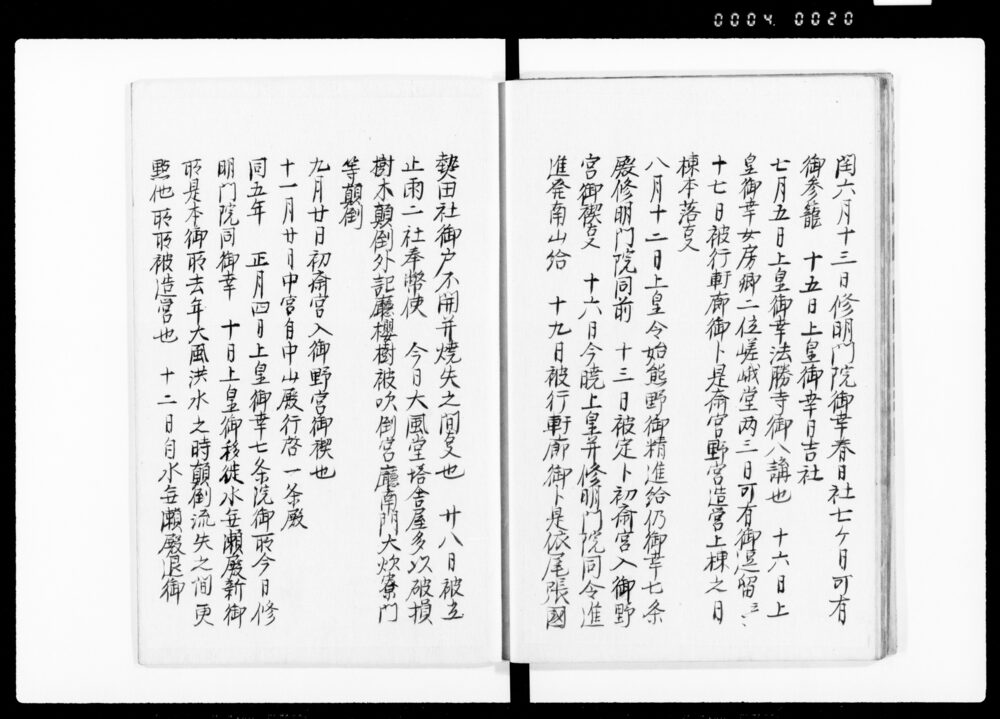 0004 0020
閏六月十三日修明門院御幸春日社七ケ日可有
御参籠　十五日上皇御幸日吉社
七月五日上皇御幸法勝寺御八講也　十六日上
皇御幸女房卿二位嵯峨堂两三日可有御逗留云々
十七日被行軒廊御卜是斎宮野宮造営上棟之日
棟木落事
八月十二日上皇令始熊野御精進給仍御幸七条
殿修明門院同前　十三日被定卜初斎宮入御野
宮御禊事　十六日今暁上皇并修明門院同令進
進発南山給　十九日被行軒廊御卜是依尾張國
熱田社御戸不開并焼失之間事也　廿八日被立
止雨二社奉幣使　今日大風堂塔舎屋多以破損
樹木顛倒外記廳櫻樹被吹倒宮廳南門大炊寮門
等顛倒
九月廿日初斎宮入御野宮御禊也
十一月廿日中宮自中山殿行啓一条殿
同五年　正月四日上皇御幸七条院御所今日修
明門院同御幸　十日上皇御移徙水無瀬殿新御
所是本御所去年大風洪水之時顛倒流失之間更
點他所所被造営也　十二日自水無瀬殿還御